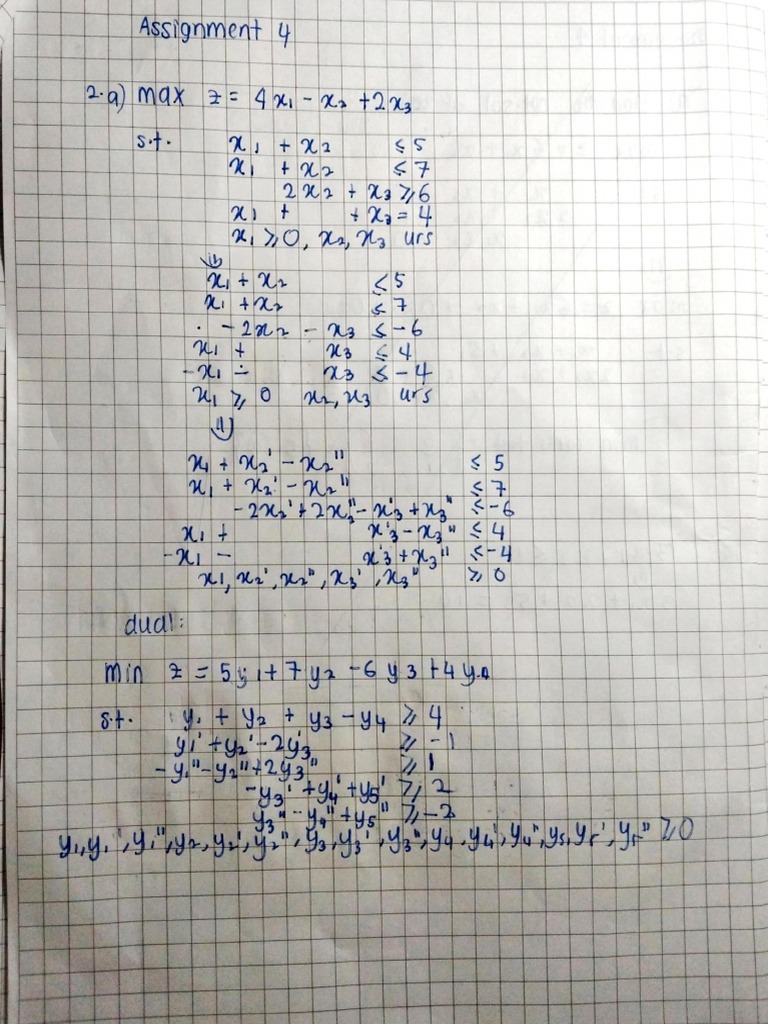 Assignment 4
2.a) max z = 4x₁ - x₂ + 2x₃
s.t. x₁ + x₂ ≤ 5
x₁ + x₂ ≤ 7
2x₂ + x₃ ≥ 6
x₁ + + x₃ = 4
x₁ ≥ 0, x₂, x₃ urs
⇓
x₁ + x₂ ≤ 5
x₁ + x₂ ≤ 7
-2x₂ - x₃ ≤ -6
x₁ + x₃ ≤ 4
-x₁ - x₃ ≤ -4
x₁ ≥ 0 x₂, x₃ urs
⇓
x₁ + x₂' - x₂" ≤ 5
x₁ + x₂' - x₂" ≤ 7
-2x₂' + 2x₂" - x₃' + x₃" ≤ -6
x₁ + x₃' - x₃" ≤ 4
-x₁ - x₃' + x₃" ≤ -4
x₁, x₂', x₂", x₃', x₃" ≥ 0
dual:
min z = 5y₁ + 7y₂ - 6y₃ + 4y₄
s.t. y₁ + y₂ + y₃ - y₄ ≥ 4
y₁' + y₂' - 2y₃' ≥ -1
-y₁" - y₂" + 2y₃" ≥ 1
-y₃' + y₄' + y₅' ≥ 2
y₃" - y₄" + y₅" ≥ -2
y₁, y₁', y₁", y₂, y₂', y₂", y₃, y₃', y₃", y₄, y₄', y₄", y₅, y₅', y₅" ≥ 0